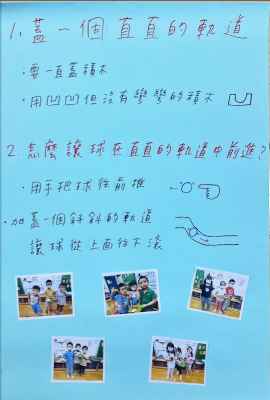 1. 蓋一個直直的軌道
·要一直蓋積木
·用凹凹但沒有彎彎的積木
2. 怎麼讓球在直直的軌道中前進?
·用手把球往前推
·加蓋一個斜斜的軌道
讓球從上面往下滾